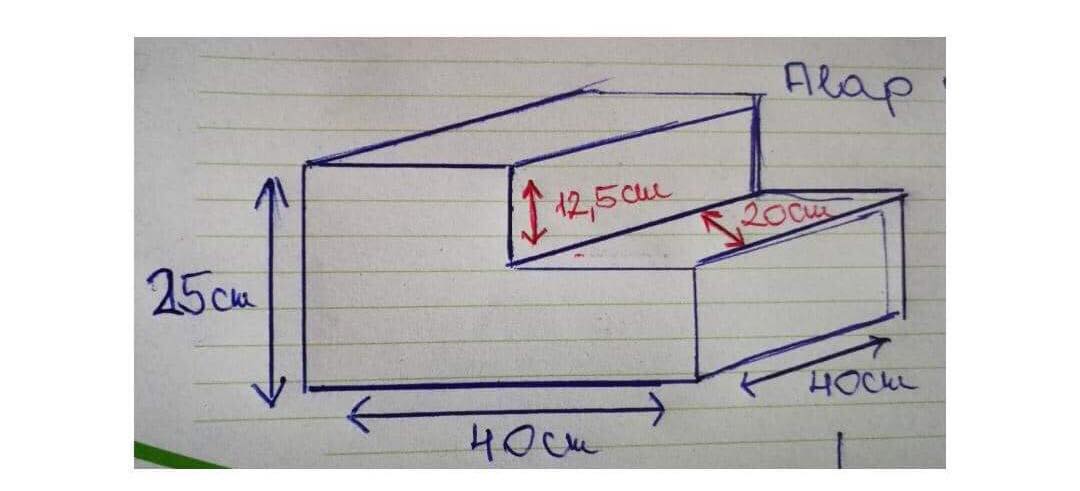 Alap
12,5cm
20cm
25cm
40cm
40cm